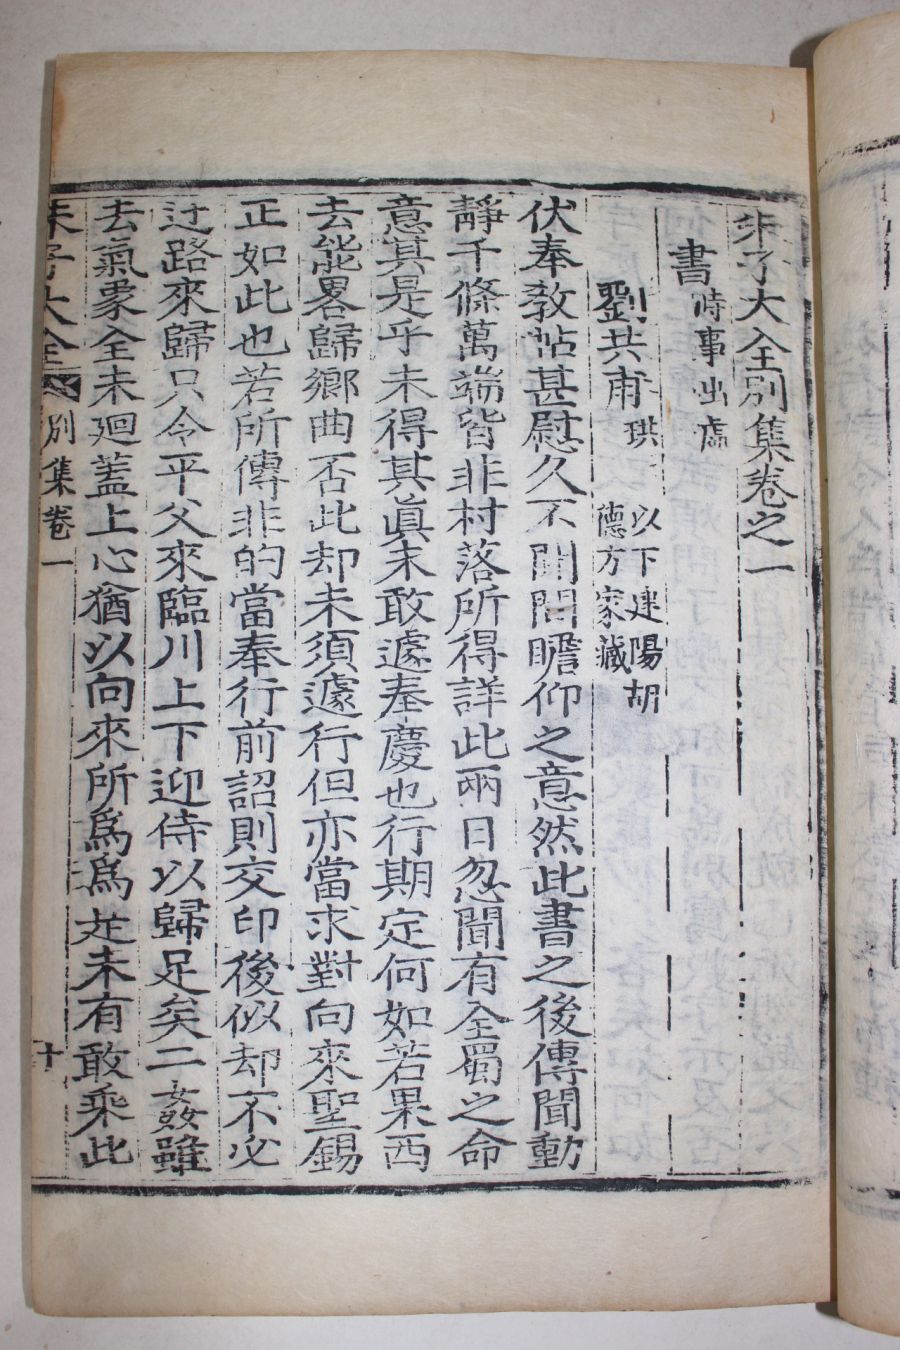 朱子大全別集卷之一
書 時事出處
劉共甫 珙 以下建陽胡德方家藏
伏奉敎帖甚慰久不聞問瞻仰之意然此書之後傳聞動
靜千條萬端皆非村落所得詳此兩日忽聞有全蜀之命
意其是乎未得其眞未敢遽奉慶也行期定何如若果西
去能畧歸鄉曲否此却未須遽行但亦當求對向來聖錫
正如此也若所傳非的當奉行前詔則交印後似却不必
迂路來歸只令平父來臨川上下迎侍以歸足矣二姦雖
去氣象全未廻蓋上心猶以向來所爲爲是未有敢乘此
朱子大全 別集卷一